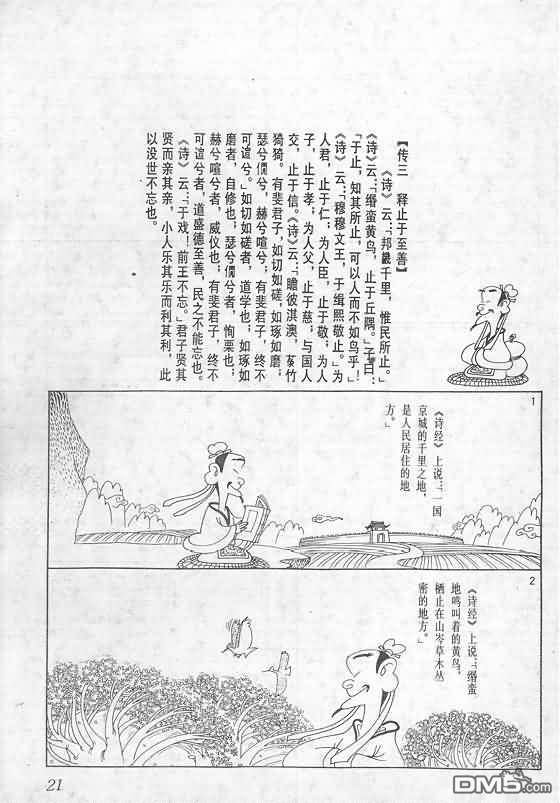 【传三　释止于至善】
《诗》云：“邦畿千里，惟民所止。”
《诗》云：“缗蛮黄鸟，止于丘隅。”子曰：
“于止，知其所止，可以人而不如鸟乎！”
《诗》云：“穆穆文王，于缉熙敬止。”为
人君，止于仁；为人臣，止于敬；为人
子，止于孝；为人父，止于慈；与国人
交，止于信。《诗》云：“瞻彼淇澳，菉竹
猗猗。有斐君子，如切如磋，如琢如磨；
瑟兮僩兮，赫兮喧兮；有斐君子，终不
可諠兮。”如切如磋者，道学也；如琢如
磨者，自修也；瑟兮僩兮者，恂栗也；
赫兮喧兮者，威仪也；有斐君子，终不
可諠兮者，道盛德至善，民之不能忘也。
《诗》云：“于戏！前王不忘。”君子贤其
贤而亲其亲，小人乐其乐而利其利，此
以没世不忘也。
1
《诗经》上说：“一国
京城的千里之地，
是人民居住的地
方。”
2
《诗经》上说：“缗蛮
地鸣叫着的黄鸟，
栖止在山岑草木丛
密的地方。”
21
DM5.com